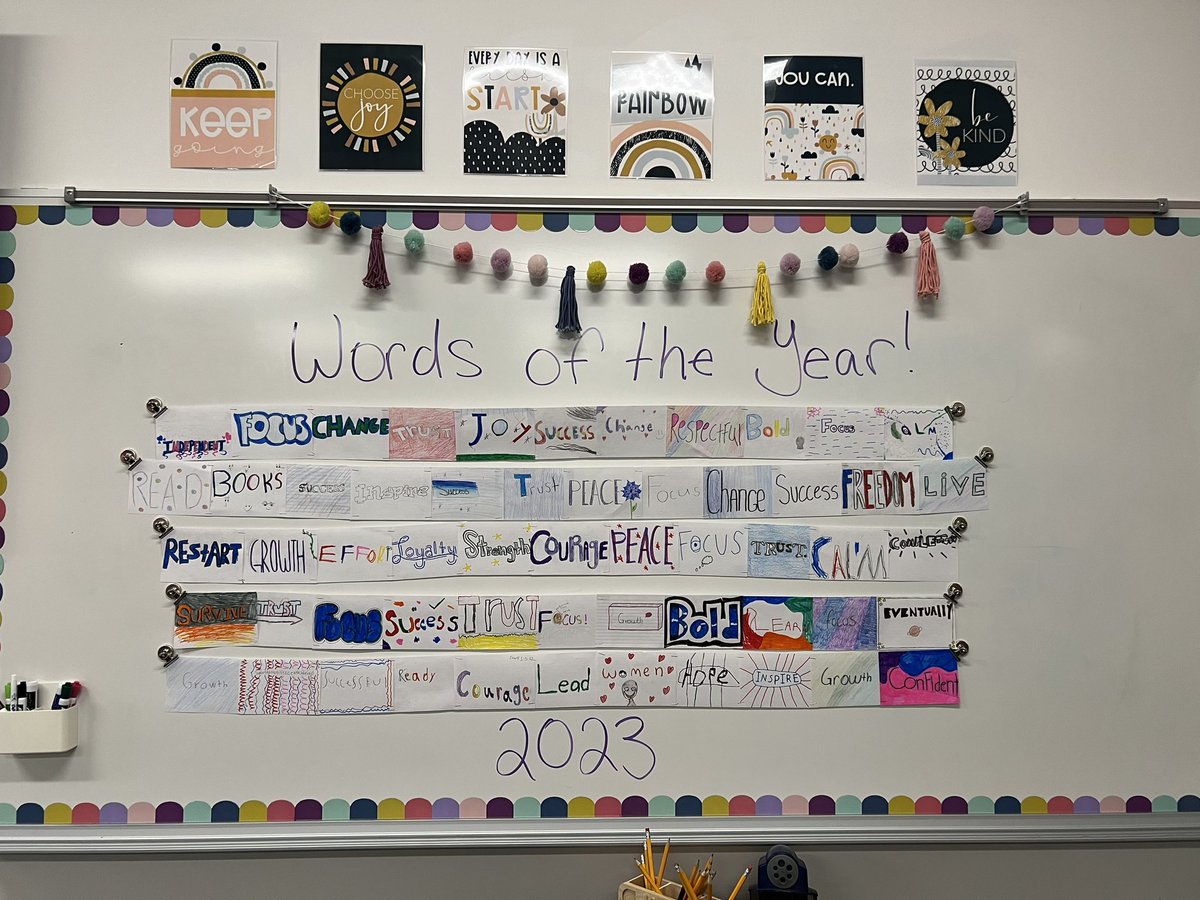 KEEP
going
CHOOSE
joy
EVERY DAY IS A
fresh
START
RAINBOW
YOU CAN.
be
KIND
Words of the Year!
INDEPENDENT FOCUS CHANGE TRUST Joy SUCCESS Change RESPECTFUL Bold Focus CALM
READ BOOKS SUCCESS Inspire Success Trust PEACE Focus CHANGE Success FREEDOM LIVE
REStART GROWTH EFFORT Loyalty Strength COURAGE PEACE FOCUS TRUST. CALM
SURVIVE TRUST FOCUS Success TRUST Focus! Growth Bold LEAR focus EVENTUALLY
Growth SUCCESSFUL Ready Courage Lead women HOPE INSPIRE Growth Confident
2023